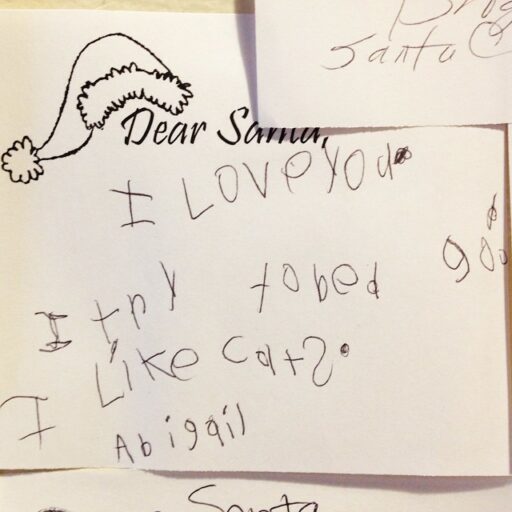 Santa
Dear Santa,
I LOVE YOU.
I try to bed
I Like Cats.
Abigail
Santa